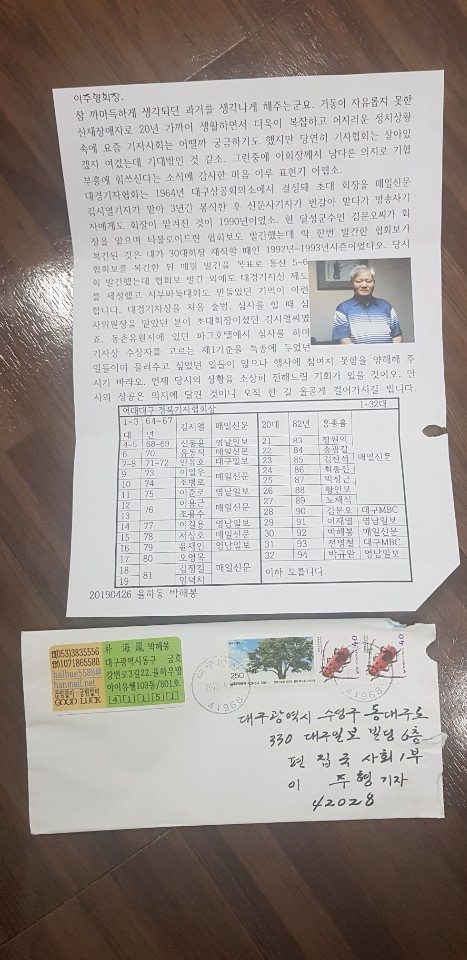 이주형회장.
참 까마득하게 생각되던 과거를 생각나게 해주는군요. 거동이 자유롭지 못한
산재장애자로 20년 가까이 생활하면서 더욱이 복잡하고 어지러운 정치상황
속에 요즘 기자사회는 어떨까 궁금하기도 했지만 당연히 기자협회는 살아있
겠지 여겼는데 기대밖인 것 같소. 그런중에 이회장께서 남다른 의지로 기협
부흥에 힘쓰신다는 소식에 감사한 마음 이루 표현키 어렵소.
대경기자협회는 1964년 대구상공회의소에서 결성돼 초대 회장을 매일신문
김시열기자가 맡아 3년간 봉직한 후 신문사기자가 번갈아 맡다가 방송사기
자에게도 회장이 맡겨진 것이 1990년이었소. 현 달성군수인 김문오씨가 회
장을 맡으며 타블로이드판 협회보도 발간했는데 딱 한번 발간한 협회보가
복간된 것은 내가 30대회장 재직할 때인 1992년~1993년시즌이었다오. 당시
협회보를 복간한 뒤 매월 발간을 목표로 통산 5-6
회 발간했는데 협회보 발간 외에도 대경기자상 제도
를 제정했고 지부바둑대회도 만들었던 기억이 아련
합니다. 대경기자상을 처음 출범, 심사를 할 때 심
사위원장을 맡았던 분이 초대회장이셨던 김시열씨였
죠. 동촌유원지에 있던 파그호텔에서 심사를 하며
기자상 수상자를 고르는 제1기준을 특종에 두었던
일들이며 들려주고 싶었던 일들이 많으나 행사에 참여치 못함을 양해해 주
시기 바라오. 언제 당시의 상황을 소상히 전해드릴 기회가 있을 것이오. 만
시의 성공은 의지에 달린 것이니 오직 한 길 올곧게 걸어가시길 빕니다.
역대대구·경북기자협회상 1-32대
1~3대 64~67년 김시열 매일신문 20대 82년 홍종흠 매일신문
4~5 68~69 신동윤 영남일보 21 83 장원익
6 70 유동식 매일신문 22 84 송광길
7~8 71~72 안유호 대구일보 23 85 김산석
9 73 이일우 매일신문 24 86 최종진
10 74 조병로 25 87 박창근
11 75 이준로 영남일보 26 88 황인보
12 76 이용근 매일신문 27 89 노채식
13 조용수 28 90 김문오 대구MBC
14 77 이길용 영남일보 29 91 이재열 영남일보
15 78 서상호 매일신문 30 92 박해봉 매일신문
16 79 윤재인 영남일보 31 93 전병철 대구MBC
17 80 오영목 매일신문 32 94 박규완 영남일보
18 81 김정길 이하 모릅니다.
19 임덕치
20190426 율하동 박해봉
☎(053)3835556
01071865588
haibee5588@
hanmail.net
GOOD LUCK
朴 海 鳳 박해봉
대구광역시동구 금호
강변로3길22.율하우방
아이유쉘109동/801호
4 1 0 5
250
40
40
41968
대구광역시 수성구 동대구로
330 대구일보 빌딩 6층
편 집 국 사회1부
이 주 형 기자
42028